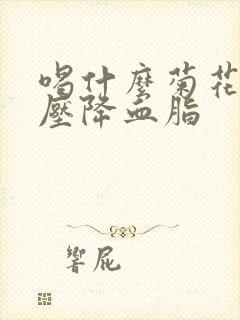 喝什麼菊花
壓降血脂
響屁